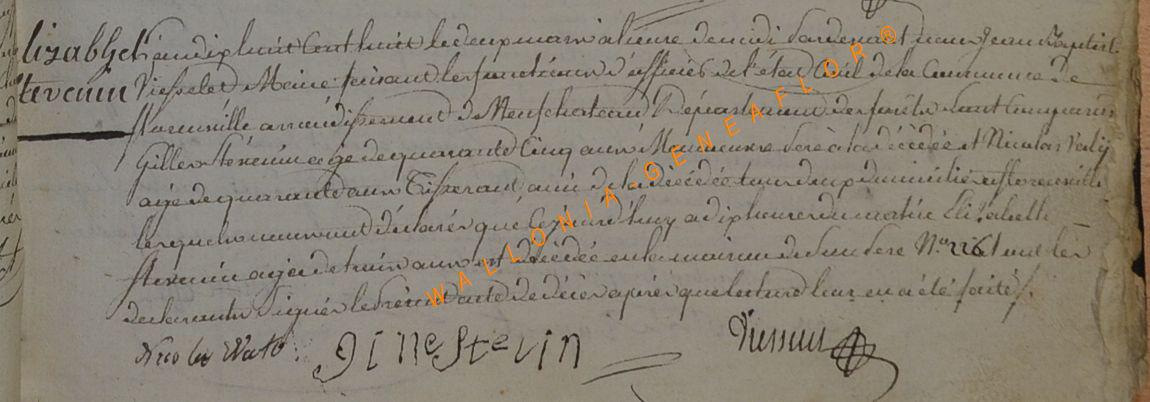 lizabhet
tevenin
L'an dix huit Cent huit le deux mars a l'heure de midi Pardevant nous Jean Baptiste
Maire faisant les fonctions d'officier de l'état Civil de la Commune de
arrondissement de Neufchateau Département des forêts Sont Comparus
Gilles Stévenin agé de quarante Cinq ans père a la décédée et Nicolas
agé de quarante ans Tisserand ami de la décédée tous deux domiciliés
lesquels nous ont déclaré que Cejourd'huy a dix heures du matin Elisabette
Stevenin agée de trois ans est décédée en la maison de son père N.º 226 et ont les
declarants Signés le présent acte de décès après que lecture leur en a été faite
Nicolas
Gille Stevin
WALLONIA-GENEAFLOR®